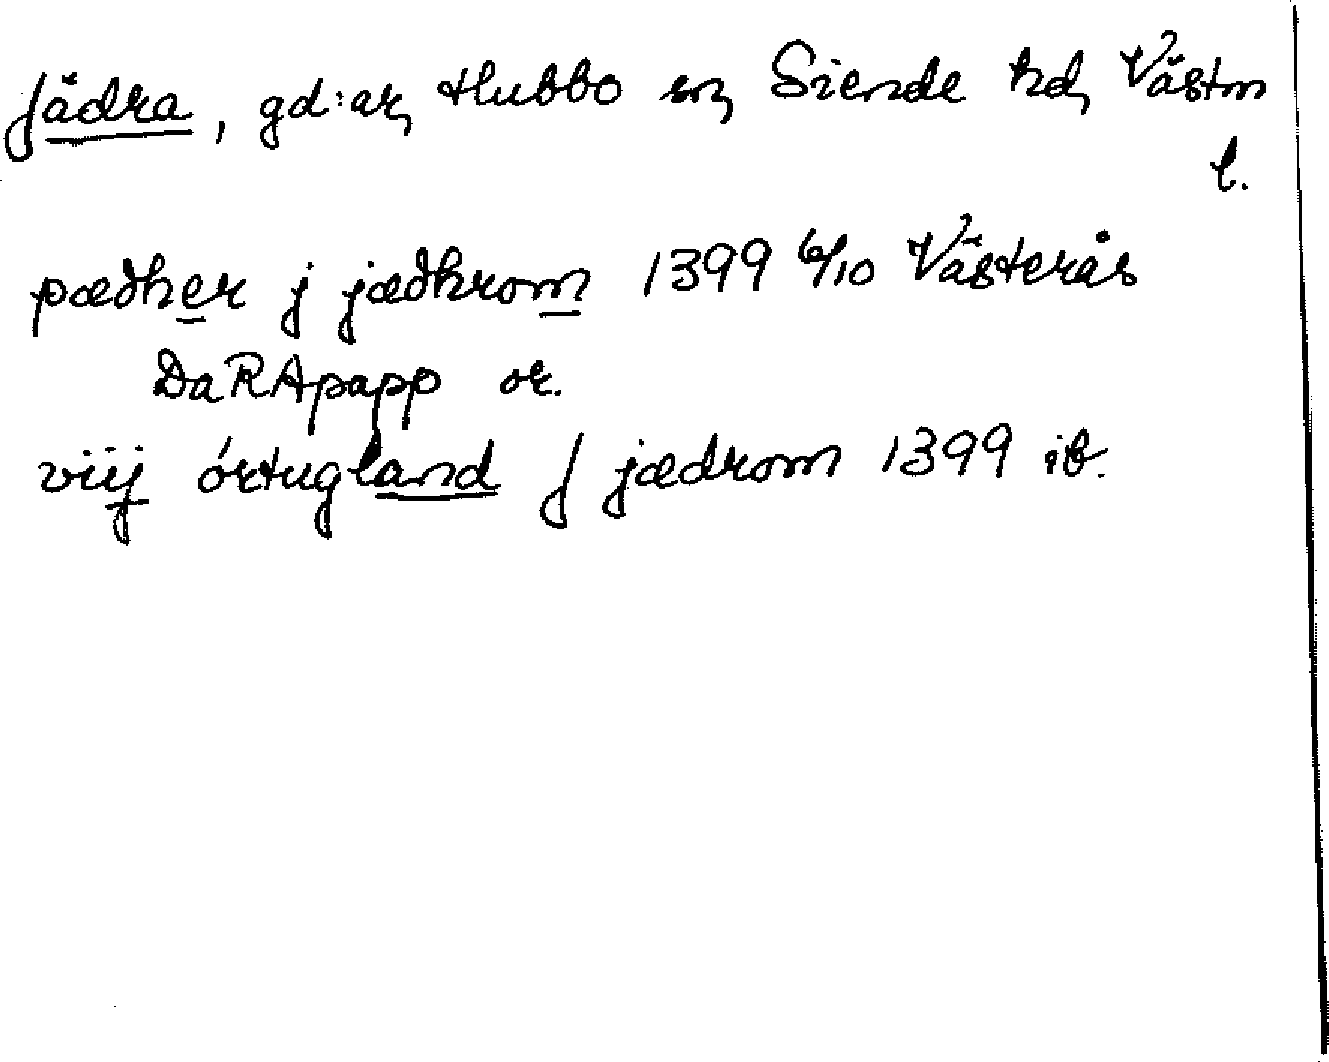 Jädra, gd:ar, Hubbo sn, Siende hd, Västm
l.
pædher j jædhrom 1399 6/10 Västerås
DaRApapp or.
viij órtugland J jædrom 1399 ib.